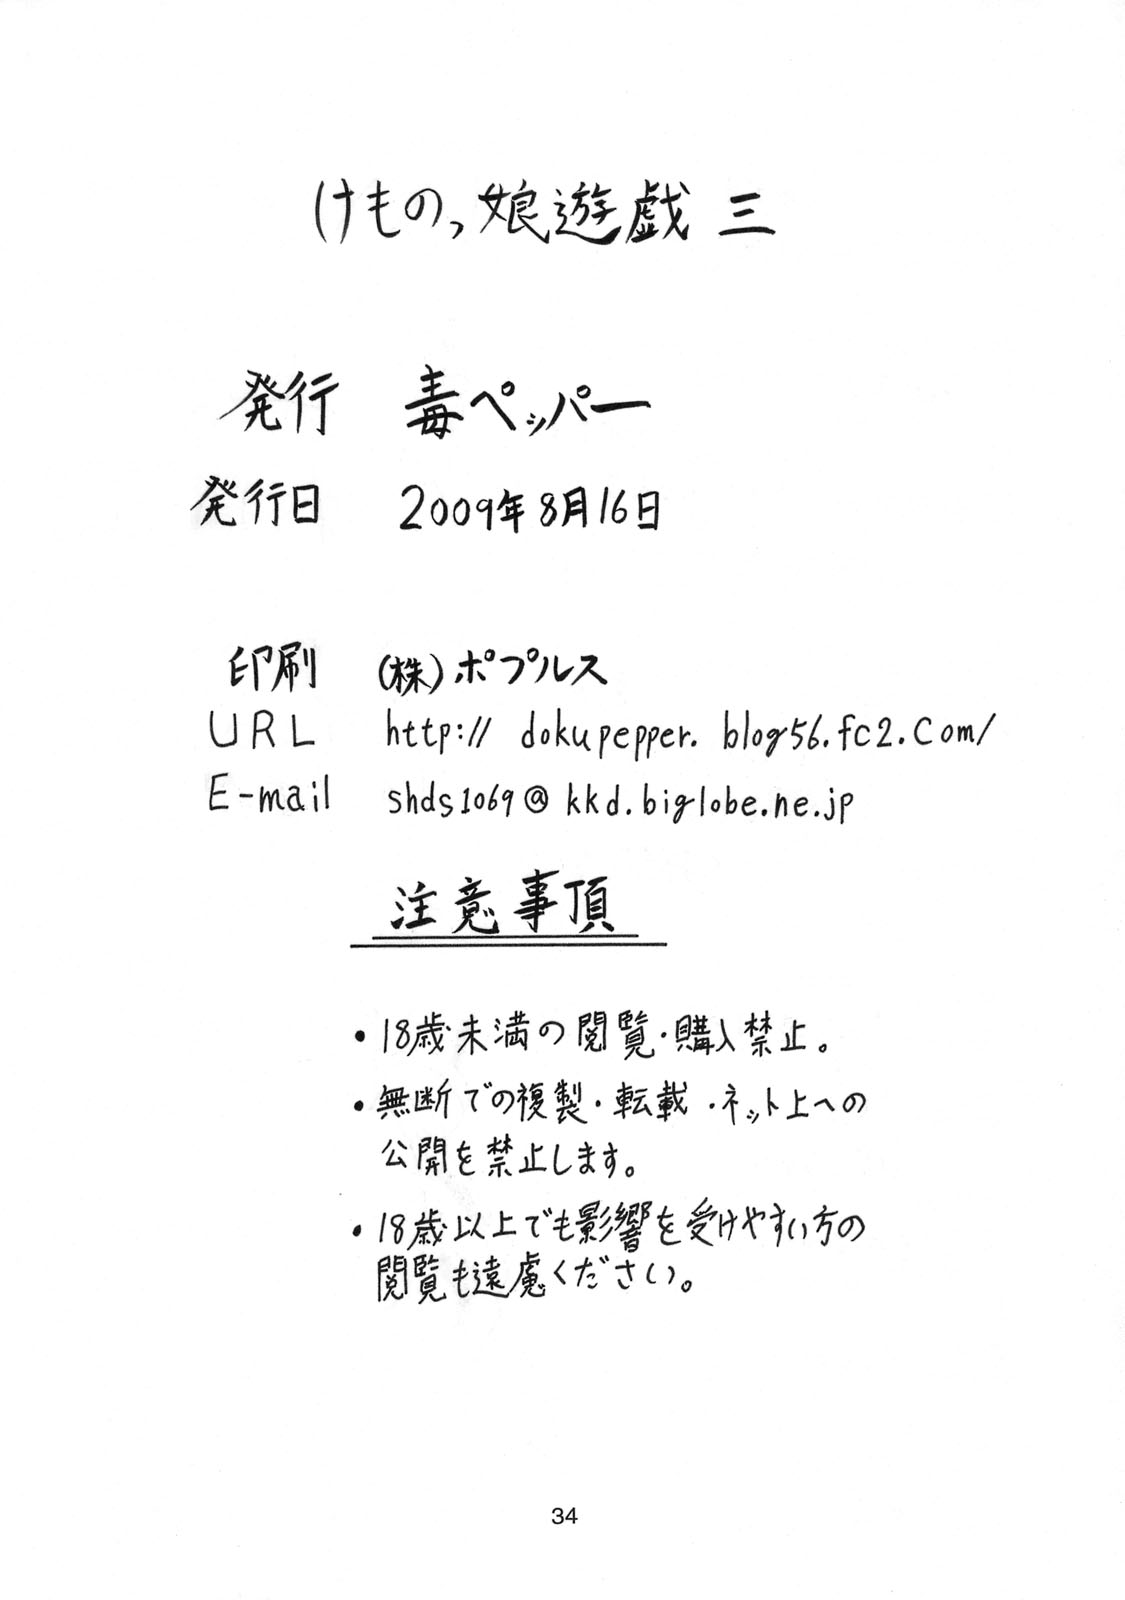 けものっ娘遊戯 三
発行 毒ペッパー
発行日 2009年8月16日
印刷 (株)ポプルス
URL http://dokupepper.blog56.fc2.Com/
E-mail shds1069@kkd.biglobe.ne.jp
注意事項
・18歳未満の閲覧・購入禁止。
・無断での複製・転載・ネット上への
公開を禁止します。
・18歳以上でも影響を受けやすい方の
閲覧も遠慮ください。
34